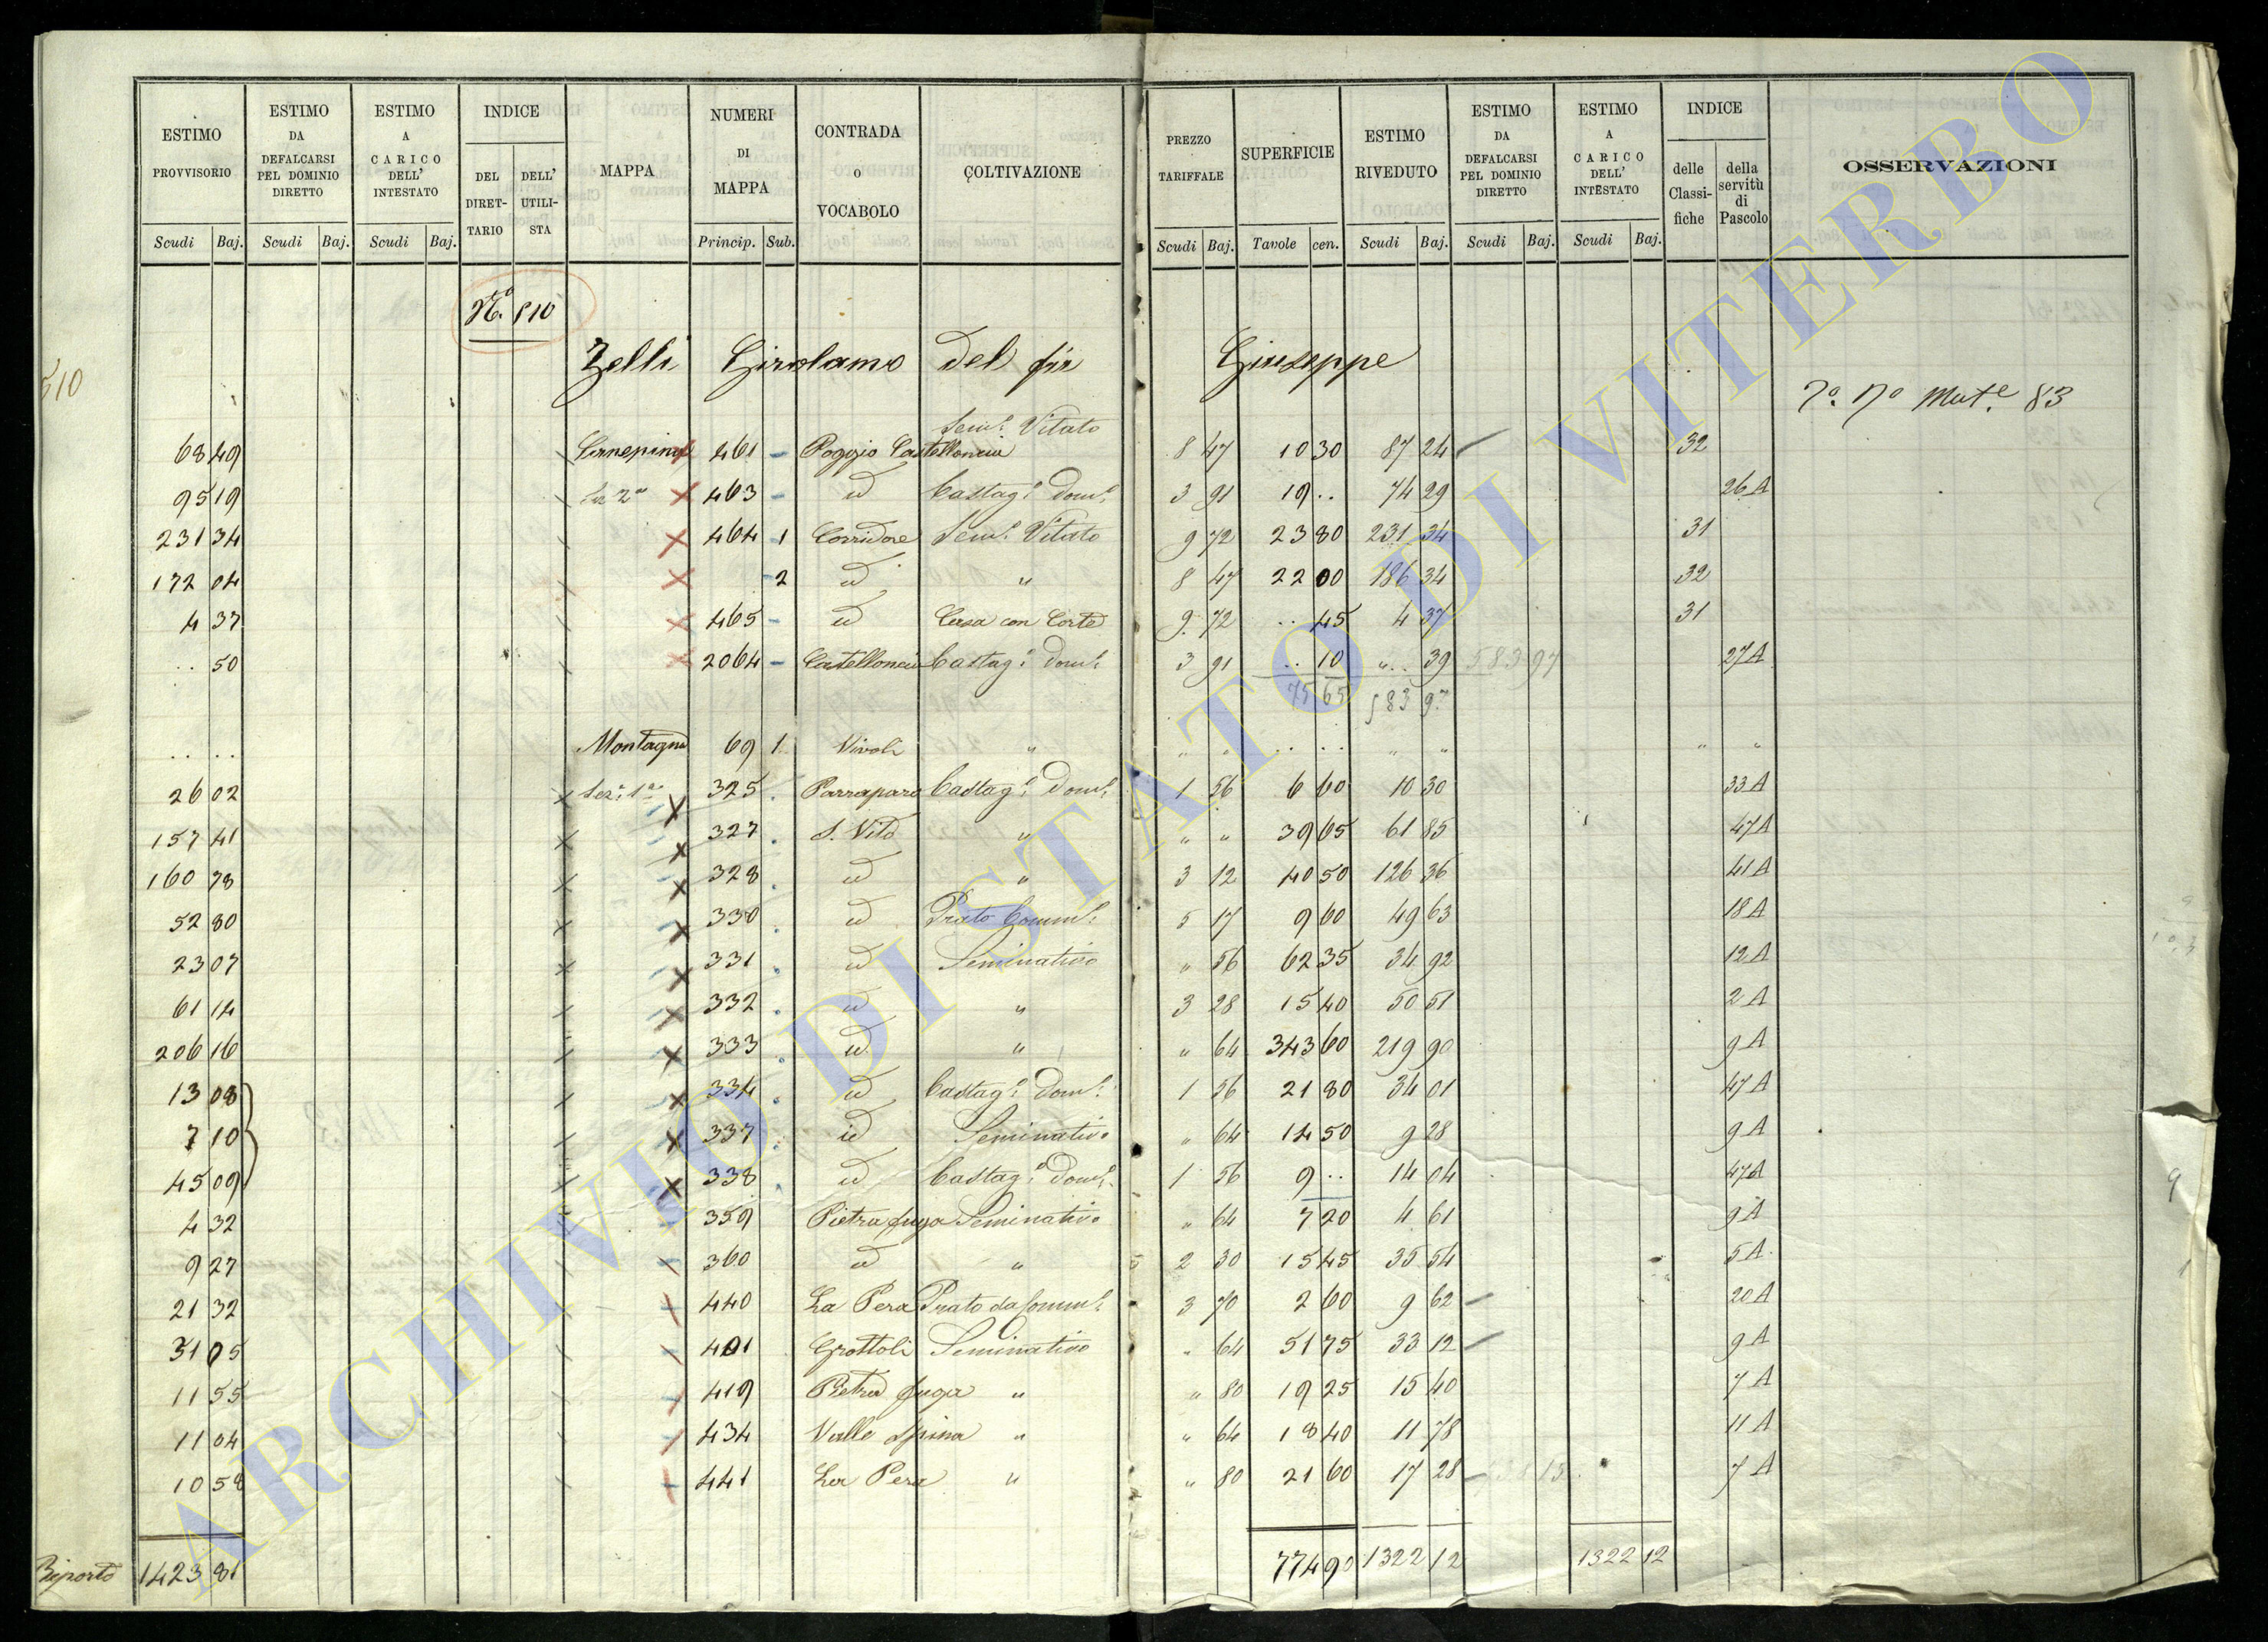 ESTIMO PROVVISORIO | ESTIMO DA DEFALCARSI PEL DOMINIO DIRETTO | ESTIMO A CARICO DELL' INTESTATO | INDICE | MAPPA | NUMERI DI MAPPA | CONTRADA O VOCABOLO | COLTIVAZIONE | PREZZO TARIFFALE | SUPERFICIE | ESTIMO RIVEDUTO | ESTIMO DA DEFALCARSI PEL DOMINIO DIRETTO | ESTIMO A CARICO DELL' INTESTATO | INDICE | OSSERVAZIONI
DEL DIRETTARIO | DELL' UTILISTA | delle Classifiche | della servitù di Pascolo
Scudi | Baj. | Scudi | Baj. | Scudi | Baj. | Princip. | Sub. | Scudi | Baj. | Tavole | cen. | Scudi | Baj. | Scudi | Baj. | Scudi | Baj.
N.º 510
510
Zelli Girolamo del fù Giuseppe
7º Nº Mut.e 83
68 49 | 461 - | Poggio | Sem.º Vitato | 8 47 | 10 30 | 87 24 | 32
95 19 | Sez 2ª | 463 - | id | Castag.º Dom.º | 3 91 | 19 .. | 74 29 | 26 A
231 34 | 464 1 | Corridore | Sem.º Vitato | 9 72 | 23 80 | 231 34 | 31
172 04 | 2 | id | " | 8 47 | 22 00 | 186 34 | 32
4 37 | 465 - | id | Casa con Corte | 9 72 | .. 45 | 4 37 | 31
.. 50 | 2064 - | Castag.º Dom.º | 3 91 | .. 10 | ".. 39 | 583 97 | 27 A
75 65 | 583 97
.. .. | Montagna | 69 1 | Nivoli | " | " " | .. .. | " " | " "
26 02 | Sez.e 1ª | 325 | Parraparo | Castag.º Dom.º | 1 56 | 6 60 | 10 30 | 33 A
157 41 | 327 | S. Vito | " | " " | 39 65 | 61 85 | 47 A
160 78 | 328 | id | " | 3 12 | 40 50 | 126 36 | 41 A
52 80 | 330 | id | Prato Comm.º | 5 17 | 9 60 | 49 63 | 18 A
23 07 | 331 | id | Seminativo | " 56 | 62 35 | 34 92 | 12 A
61 14 | 332 | id | " | 3 28 | 15 40 | 50 51 | 2 A
206 16 | 333 | id | " | " 64 | 343 60 | 219 90 | 9 A
13 08 | 334 | id | Castag.º Dom.º | 1 56 | 21 80 | 34 01 | 47 A
7 10 | 337 | id | Seminativo | " 64 | 14 50 | 9 28 | 9 A
45 09 | 338 | id | Castag.º Dom.º | 1 56 | 9 .. | 14 04 | 47 A
4 32 | 359 | Pietra fuga | Seminativo | " 64 | 7 20 | 4 61 | 9 A
9 27 | 360 | id | " | 2 30 | 15 45 | 35 54 | 5 A
21 32 | 440 | La Pera | Prato da Comm.º | 3 70 | 2 60 | 9 62 | 20 A
31 05 | 401 | Grottoli | Seminativo | " 64 | 51 75 | 33 12 | 9 A
11 55 | 419 | Pietra fuga | " | " 80 | 19 25 | 15 40 | 7 A
11 04 | 434 | Valle Spina | " | " 64 | 18 40 | 11 78 | 11 A
10 58 | 441 | La Pera | " | " 80 | 21 60 | 17 28 | 7 A
Riporto | 1423 81 | 774 90 | 1322 12 | 1322 12
ARCHIVIO DI STATO DI VITERBO